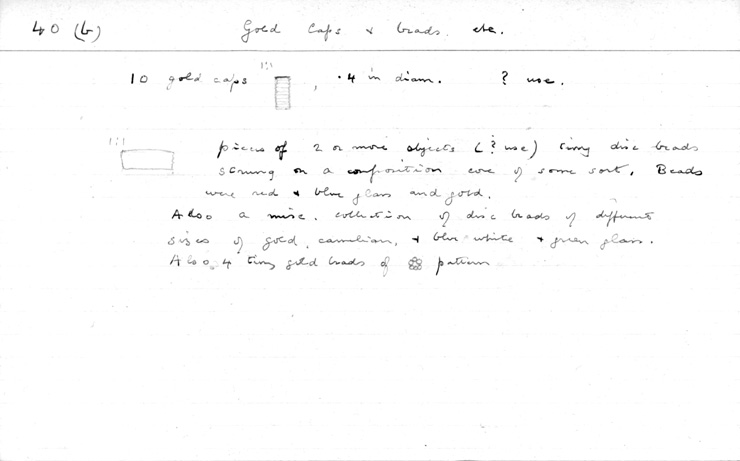 40 (b) Gold caps & beads. etc.
10 gold caps 1:1 , .4 in diam. ? use.
1:1 pieces of 2 or more objects (? use) tiny disc beads
strung on a composition core of some sort. Beads
were red & blue glass and gold.
Also a misc. collection of disc beads of different
sizes of gold, carnelian, & blue white & green glass.
Also 4 tiny gold beads of pattern